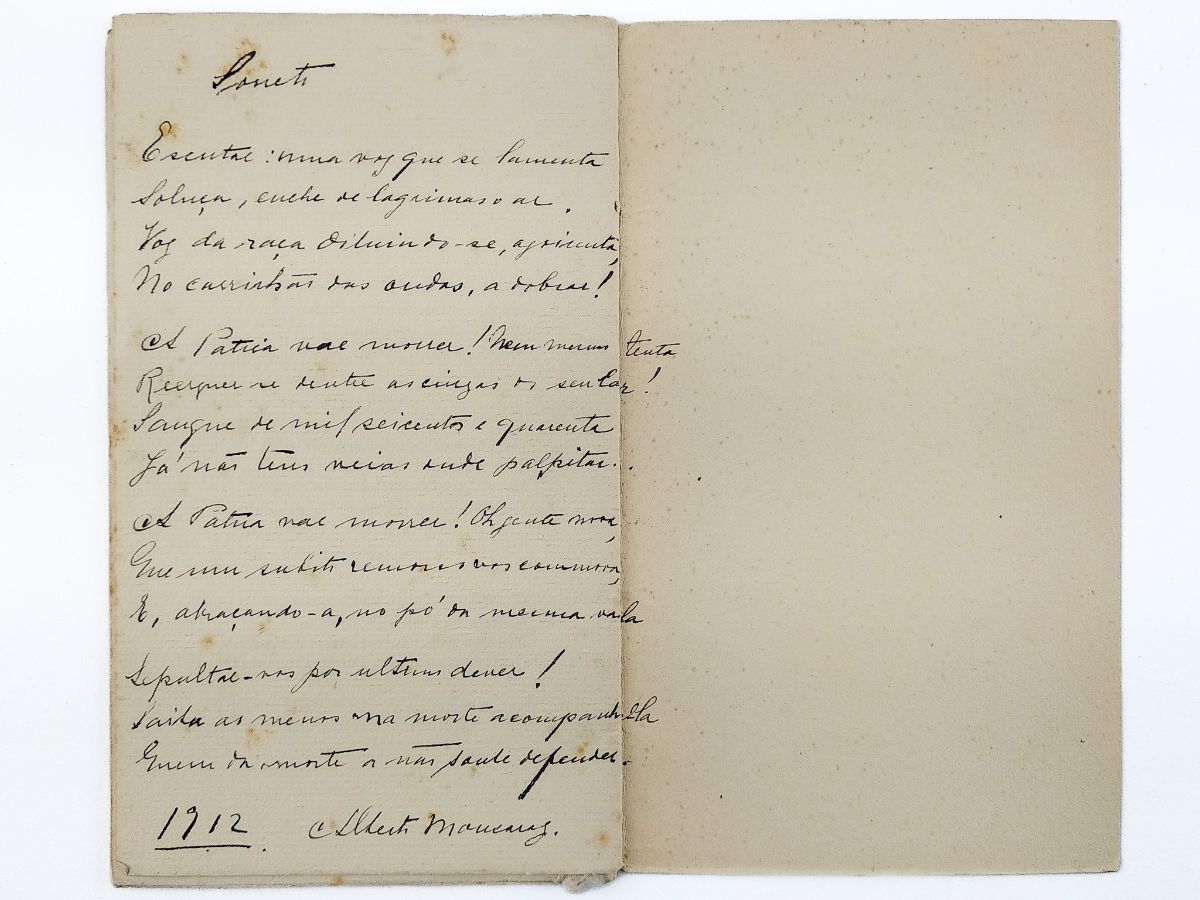 Soneto
Escutae: uma voz que se lamenta
Soluça, enche de lagrimas o ar.
Voz da raça diluindo-se, agoirenta,
No carrilhão das ondas, a dobrar!
A Patria vae morrer! Nem mesmo tenta
Reerguer-se dentre as cinzas do seu lar!
Sangue de mil seicentos e quarenta
Já não tens veias onde palpitar..
A Patria vae morrer! Oh gente nova,
Que um subito remorso vos commova,
E, abraçando-a, no pó da mesma vala
Sepultae-vos por ultimo dever!
Saiba ao menos na morte acompanhal-a
Quem da morte a não soube defender.
1912. Alberto Monsaraz.